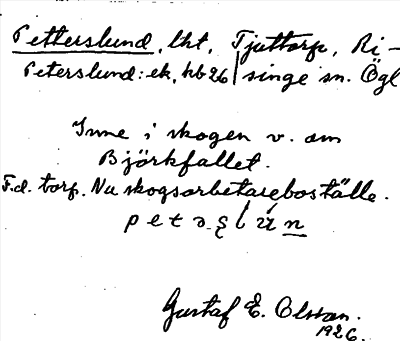 Petterslund, lht, Tjuttorp, Ri-
Peterslund: ek, hb 26 singe sn. Ögl
Inne i skogen v. om
Björkfallet.
F.d. torp. Nu skogsarbetareboställe.
Gustaf E. Olsson.
1926.